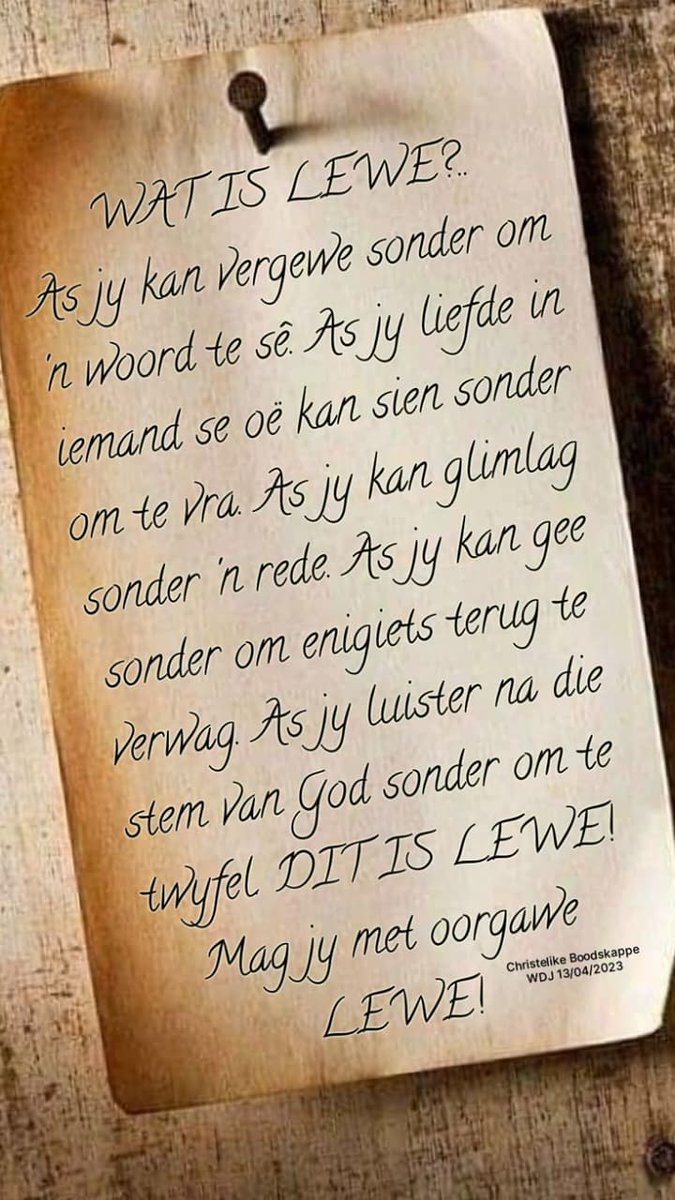 WAT IS LEWE?..
As jy kan vergewe sonder om
'n woord te sê. As jy liefde in
iemand se oë kan sien sonder
om te vra. As jy kan glimlag
sonder 'n rede. As jy kan gee
sonder om enigiets terug te
verwag. As jy luister na die
stem van God sonder om te
twyfel DIT IS LEWE!
Mag jy met oorgawe
LEWE!
Christelike Boodskappe
WDJ 13/04/2023